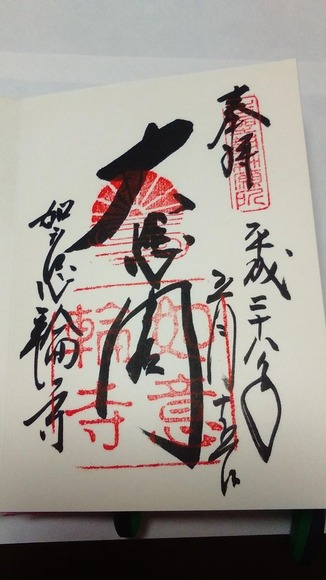 奉拝
平成二十八年
五月十五日
大悲閣
如意輪寺
如意
輪寺